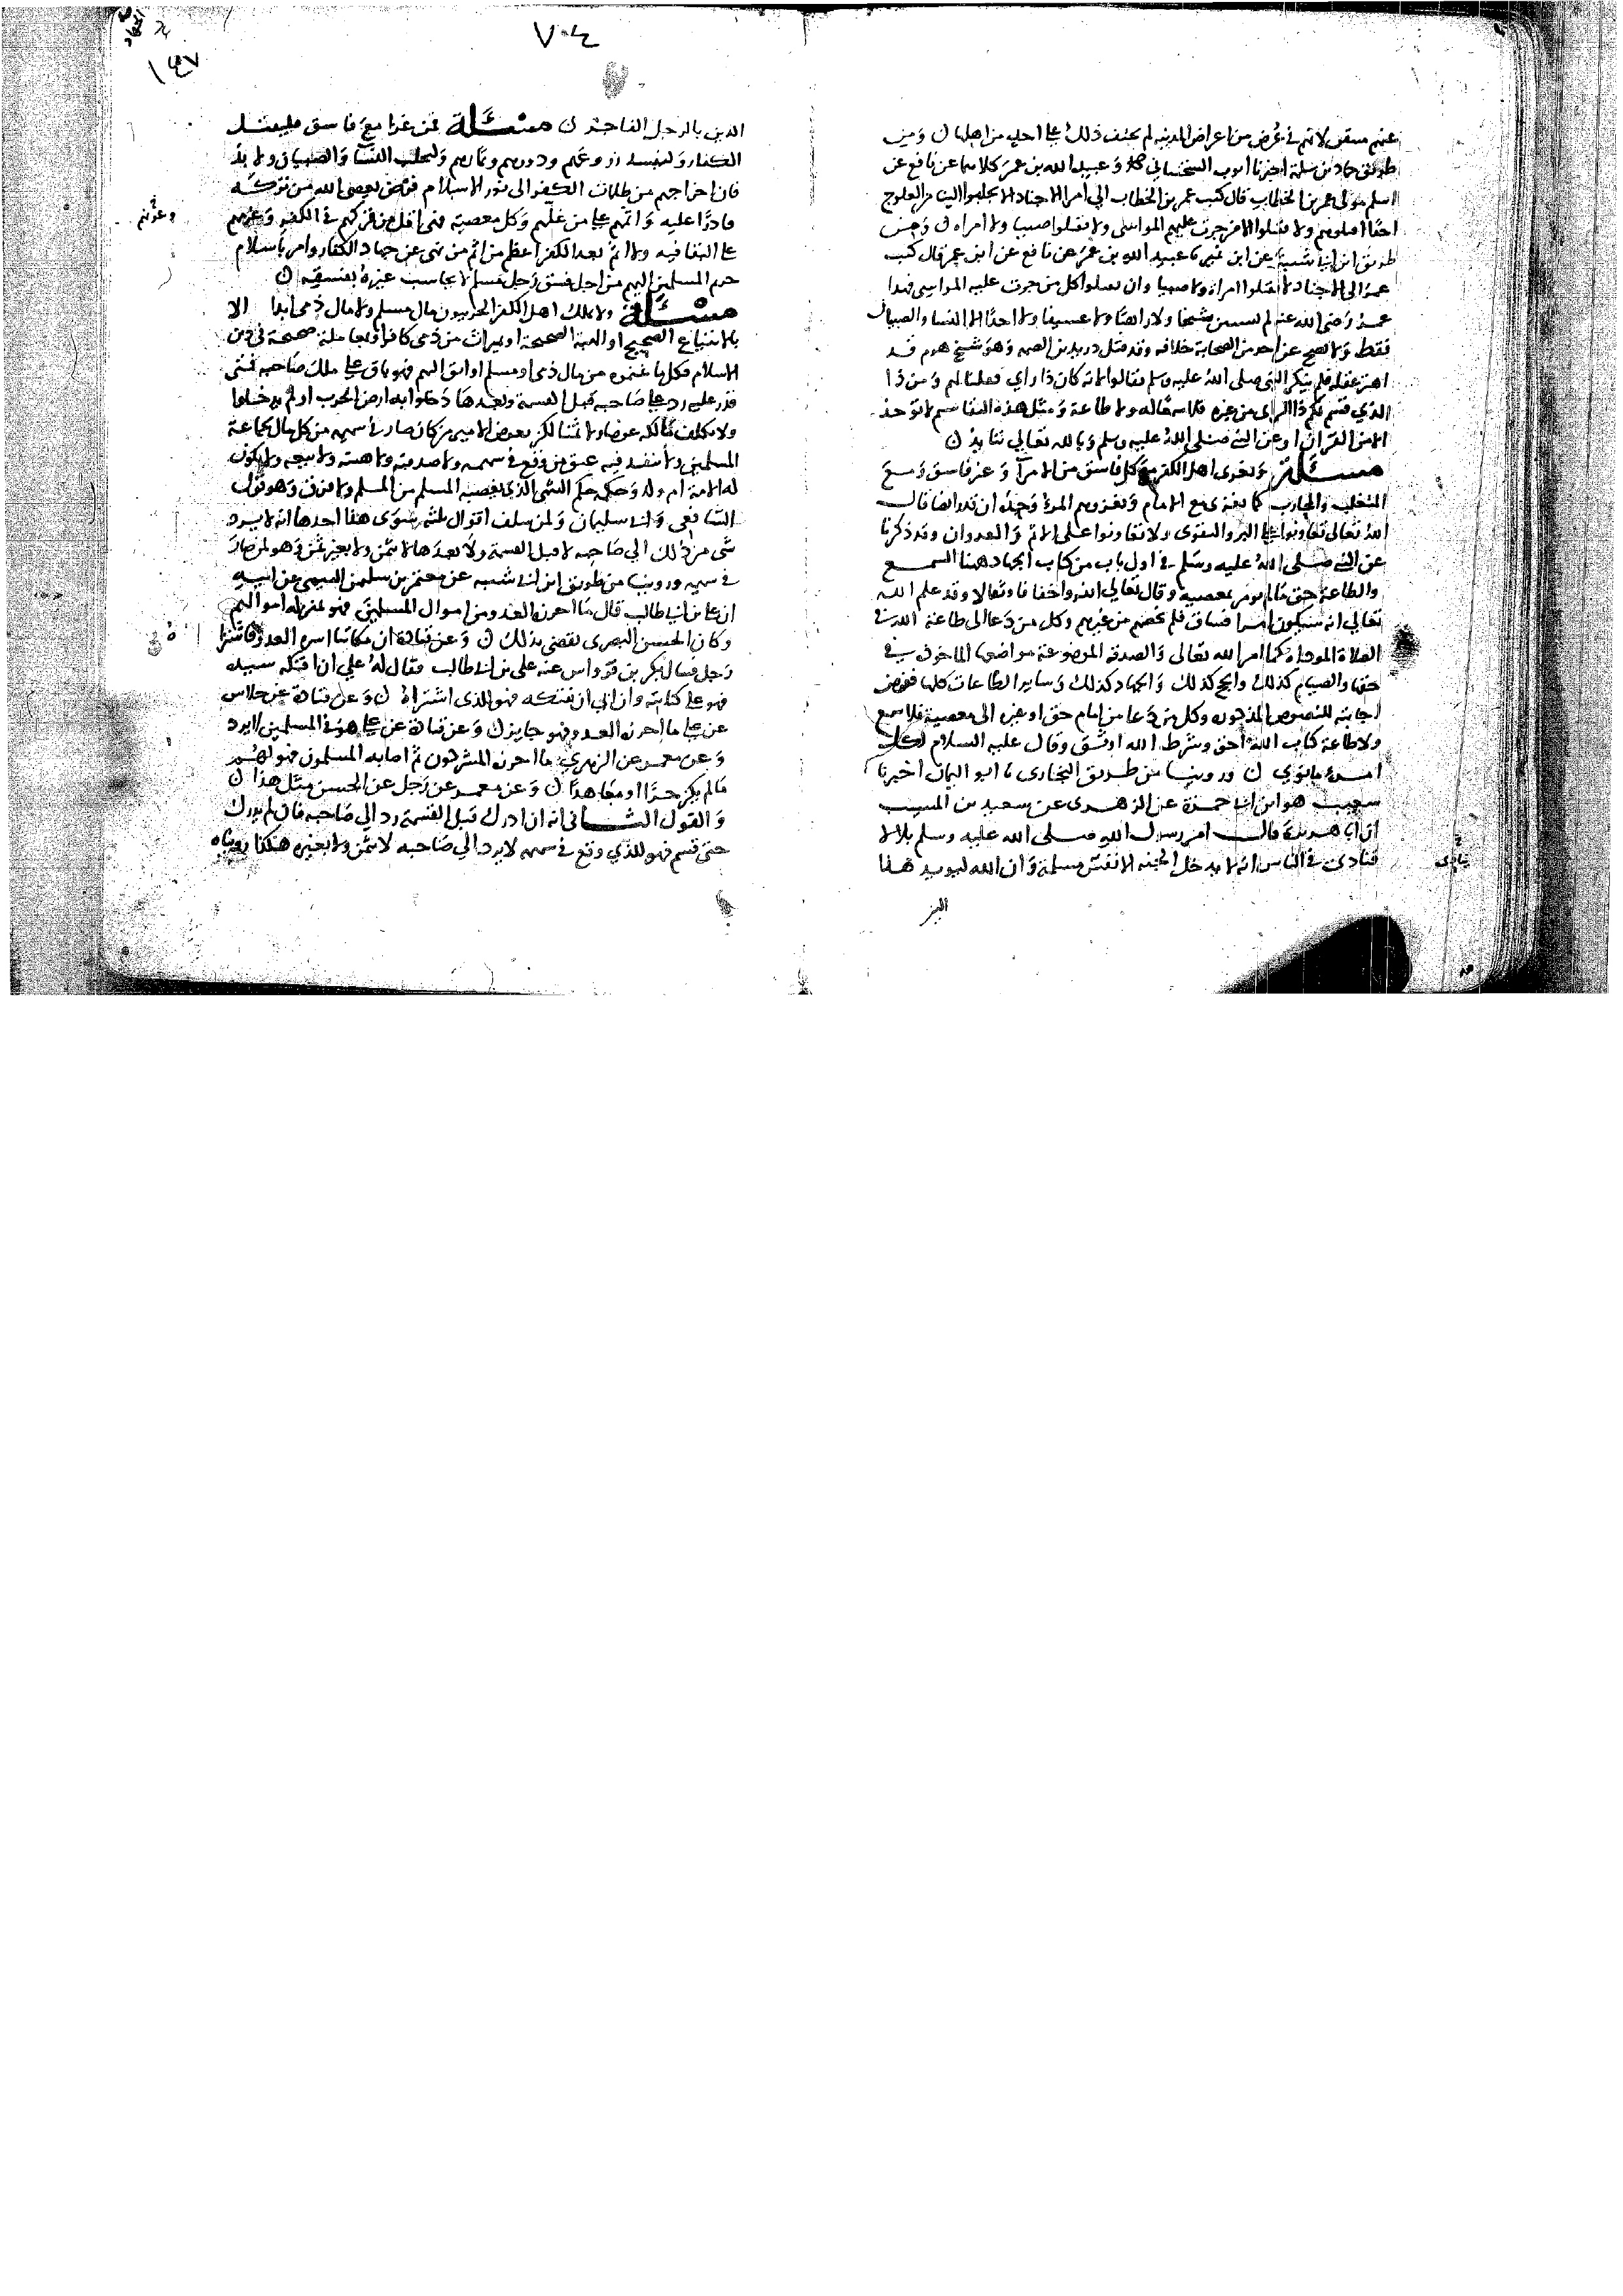 عنهم مبقى لانهم في عرض من اعراض المدينه لم يحنف ذلك على احد من اهلها ن ومن
طريق حماد بن سلمة اخبرنا ايوب السختياني وعبيد الله بن عمر كلاهما عن نافع عن
اسلم مولى عمر بن الخطاب قال كتب عمر بن الخطاب الى امرا الاجناد لا تجلبوا الينا من العلوج
احدًا اقتلوهم ولا تقتلوا الا من جرت عليهم المواسى ولا تقتلوا صبيا ولا امراه ن ومن
طريق ابن ابي شيبة عن ابن نمير نا عبيد الله بن عمر عن نافع عن ابن عمر قال كتب
عمر الى الاجناد لا تقتلوا امراة ولا صبيا وان تقتلوا كل من جرت عليه المواسى فهذا
عمر رضى الله عنه لم يستثن شيخا ولا راهبًا ولا عسيفا ولا احدًا الا النسا والصبيان
فقط ولا يصح عن احد من الصحابة خلافه وقد قتل دريد بن الصمه وهو شيخ هرم قد
اهتز عقله فلم ينكر النبي صلى الله عليه وسلم فقالوا لانه كان ذا راي فقلنا لهم ومن ذا
الذي قسم لكم ذا الراى من غيره فلا سمعًا له ولا طاعة ومثل هذه التقاسيم لا تؤخذ
الا من القران او عن النبي صلى الله عليه وسلم وبالله تعالى نتايد ن
مسئلة ويغزى اهل الكفر مع كل فاسق من الامرآ وغير فاسق ومع
المتغلب والمحارب كما يغزى مع الامام ويغزوهم المرء وحده ان قدر ايضا قال
الله تعالى تعاونوا على البر والتقوى ولا تعاونوا على الاثم والعدوان وقد ذكرنا
عن النبي صلى الله عليه وسلم في اول باب من كتاب الجهاد هنا السمع
والطاعة حق ما لم يومر بمعصية وقال تعالى انفروا خفافا وثقالا وقد علم الله
تعالى انه سيكون امرا فساق فلم يخصهم من غيرهم وكل من دعا الى طاعة الله في
الصلاة المؤداة كما امر الله تعالى والصدقه الموضوعة مواضعها الماخوذة في
حقها والصيام كذلك والحج كذلك والجهاد كذلك وساير الطاعات كلها ففرض
اجابته للنصوص المذكورة وكل من دعا من امام حق او غيره الى معصية فلا سمع
ولا طاعة كتاب الله احق وشرط الله اوثق وقال عليه السلام لكل
امرء ما نوى ن وروينا من طريق البخارى نا ابو اليمان اخبرنا
شعيب هو ابن ابي حمزة عن الزهرى عن سعيد بن المسيب
ان ابا هريرة قال امر رسول الله صلى الله عليه وسلم بلالا
فنادى في الناس انه لا يدخل الجنه الا نفس مسلمة وان الله ليويد هذا
ينادى
١٤٧
٧٠٤
الدين بالرجل الفاجر ن مسئلة فمن غزا مع فاسق فليقتل
الكفار وليفسد زروعهم ودورهم وثمارهم وليجلب النسا والصبيان ولا بد
فان اخراجهم من ظلمات الكفر الى نور الاسلام فرض يعصى الله من تركه
قادرًا عليه واثمهم على من غلهم وكل معصية فهى اقل من تركهم في الكفر وعونهم
وعونهم
على البقا فيه ولا اثم بعد الكفر اعظم من اثم من نهى عن جهاد الكفار وامر باسلام
حرم المسلمين اليهم من اجل فسق رجل مسلم لا يحاسب غيره بفسقه ن
مسئلة ولا يملك اهل الكفر الحربيون مال مسلم ولا مال ذمى ابدا الا
بالابتياع الصحيح او الهبة الصحيحة او بميراث من ذمى كافر او بمعاملة صحيحة في دين
الاسلام فكل ما غنموه من مال ذمى او مسلم او ابق اليهم فهو باق على ملك صاحبه فمتى
قدر عليه رد على صاحبه قبل القسمة وبعدها دخلوا به ارض الحرب او لم يدخلوا
ولا يكلف مالكه عوضا ولا ثمنا لكن يعوض الامير من كان صار في سهمه من كل مال لجماعة
المسلمين ولا ينفذ فيه عتق من وقع في سهمه ولا صدقته ولا هبته ولا بيعه ولا يكون
له الامة ام ولد وحكمه حكم الشى الذى يغصبه المسلم من المسلم ولا فرق وهو قول
الشافعي وابي سليمان ولمن سلف اقوال ثلثه سوى هذا احدها انه لا يرد
شى من ذلك الى صاحبه لا قبل القسمة ولا بعدها لا بثمن ولا بغير ثمن وهو لمن صار
في سهمه وروينا من طريق ابن ابي شيبه عن معتمر بن سليمن التيمي عن ابيه
ان على بن ابي طالب قال ما احرزه العدو من اموال المسلمين فهو بمنزلة اموالهم
وكان الحسن البصرى يقضي بذلك ن وعن قتادة ان مكاتبا اسره العدو فاشتراه
رجل فسال بكر بن قرواش عنه على بن ابي طالب فقال له علي ان افتكه سيده
فهو على كتابته وان ابى ان يفتكه فهو للذى اشتراه ن وعن قتادة عن خلاس
عن على ما احرزه العدو فهو جايز ن وعن قتادة عن على هو في المسلمين لا يرد
وعن معمر عن الزهري ما احرزه المشركون ثم اصابه المسلمون فهو لهم
ما لم يكن حرًا او معاهدًا ن وعن معمر عن رجل عن الحسن مثل هذا ن
والقول الثانى انه ان ادرك قبل القسمة رد الى صاحبه فان لم يدرك
حتى قسم فهو للذي وقع في سهمه لا يرد الى صاحبه لا بثمن ولا بغيره هكذا رويناه